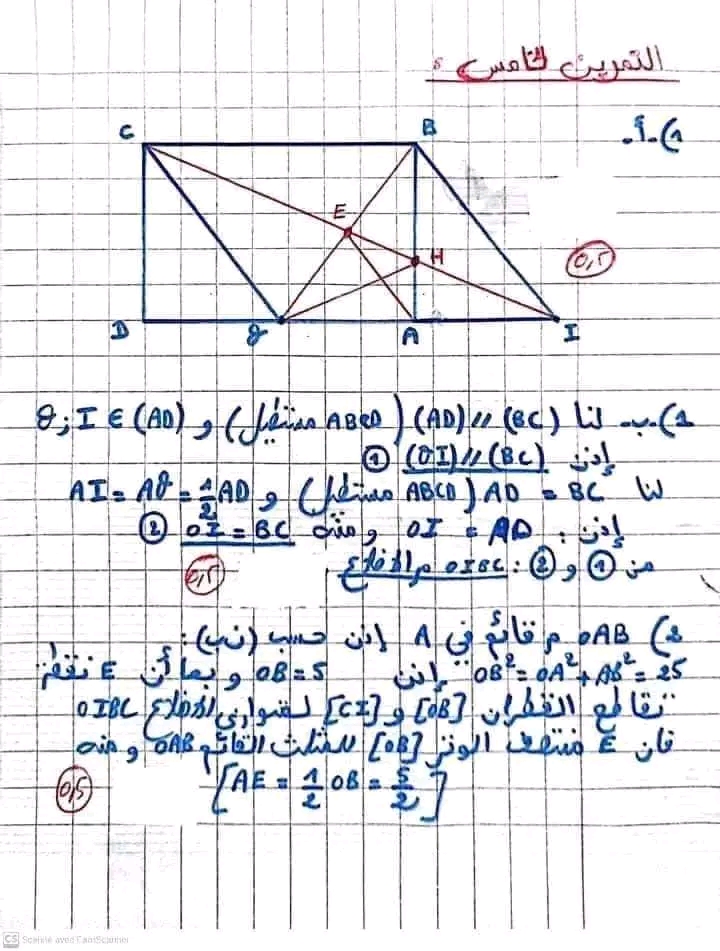 التمرين الخامس :
1) أ.
C B
E
H
0,5
D J A I
1) ب. لنا (BC) // (AD) (ABCD مستطيل) و J ; I ∈ (AD)
إذن (JI) // (BC) ①
لنا AD = BC (ABCD مستطيل) و AI = AJ = 1/2 AD
إذن : JI = AD ومنه JI = BC ②
من ① و ② : JIBC م الأضلاع
0,5
2) JAB م قائم في A إذن حسب (نب) :
JB² = JA² + AB² = 25 إذن JB = 5 و بما أن E نقطة
تقاطع القطران [JB] و [CI] لمتوازي الأضلاع JIBC
فان E منتصف الوتر [JB] للمثلث القائم JAB و منه
[AE = 1/2 JB = 5/2]
0,5
CS Scanné avec CamScanner